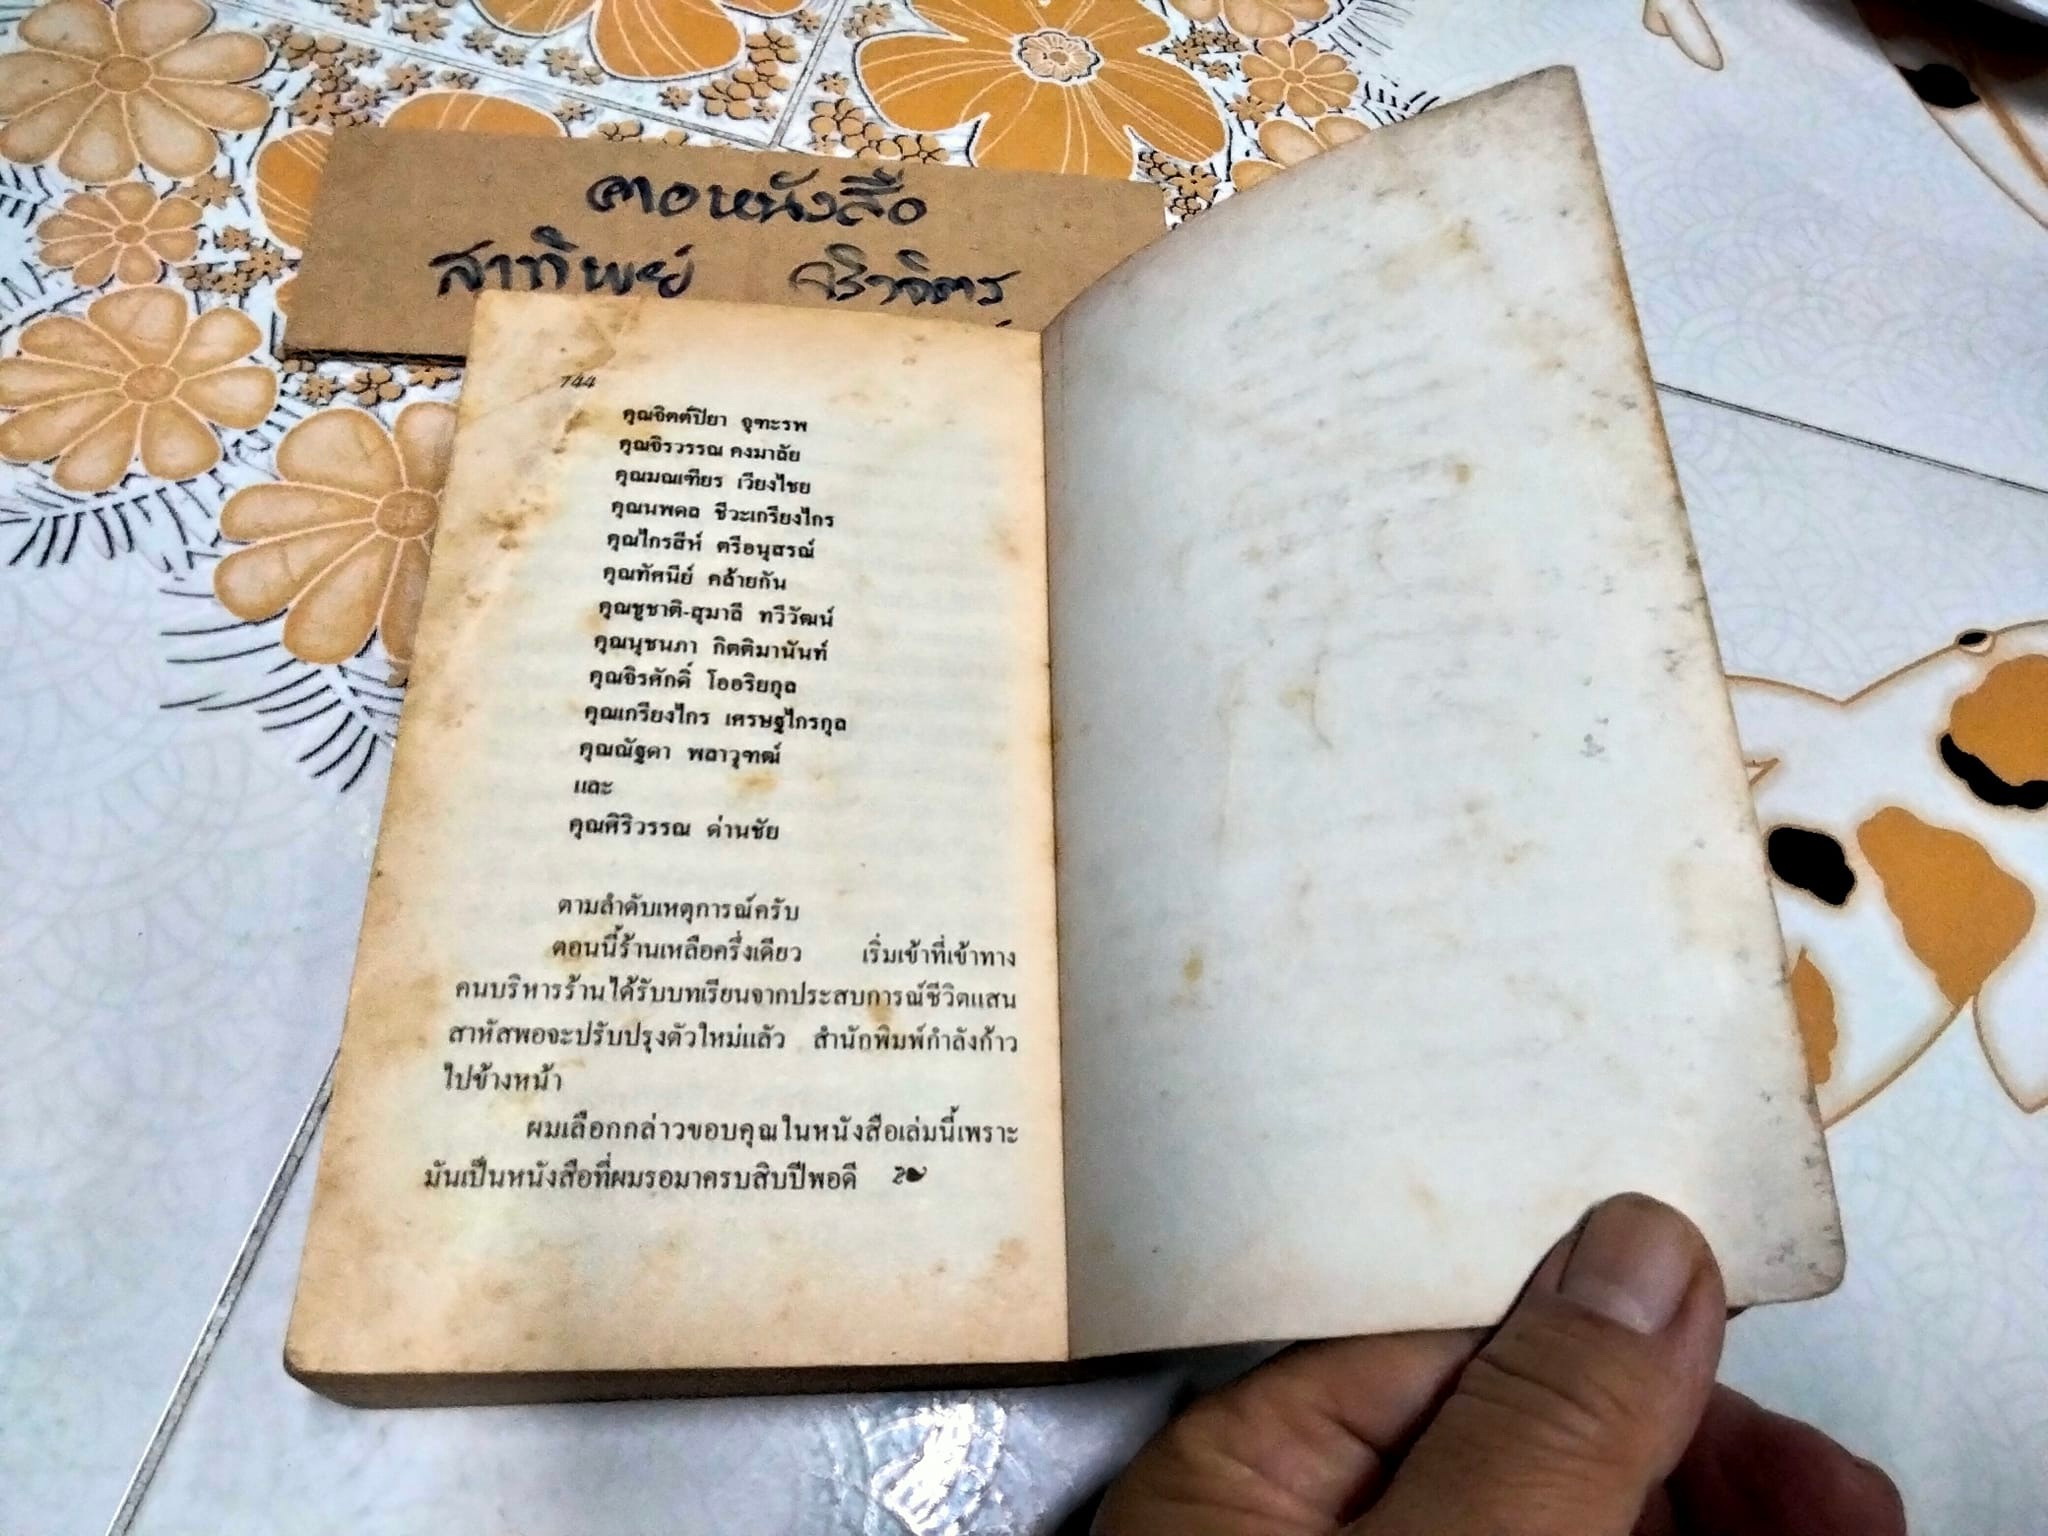 คอหนังสือ
สาทิพย์
744
คุณจิตต์ปิยา จุฑะรพ
คุณจิรวรรณ คงมาลัย
คุณมณเฑียร เวียงไชย
คุณนพดล ชีวะเกรียงไกร
คุณไกรสีห์ ตรีอนุสรณ์
คุณทัศนีย์ คล้ายกัน
คุณชูชาติ-สุมาลี ทวีวัฒน์
คุณนุชนภา กิตติมานันท์
คุณจิรศักดิ์ โออริยกุล
คุณเกรียงไกร เศรษฐไกรกุล
คุณณัฐดา พลาวุฑฒ์
และ
คุณศิริวรรณ ด่านชัย
ตามลำดับเหตุการณ์ครับ
ตอนนี้ร้านเหลือครึ่งเดียว เริ่มเข้าที่เข้าทาง
คนบริหารร้านได้รับบทเรียนจากประสบการณ์ชีวิตแสน
สาหัสพอจะปรับปรุงตัวใหม่แล้ว สำนักพิมพ์กำลังก้าว
ไปข้างหน้า
ผมเลือกกล่าวขอบคุณในหนังสือเล่มนี้เพราะ
มันเป็นหนังสือที่ผมรอมาครบสิบปีพอดี